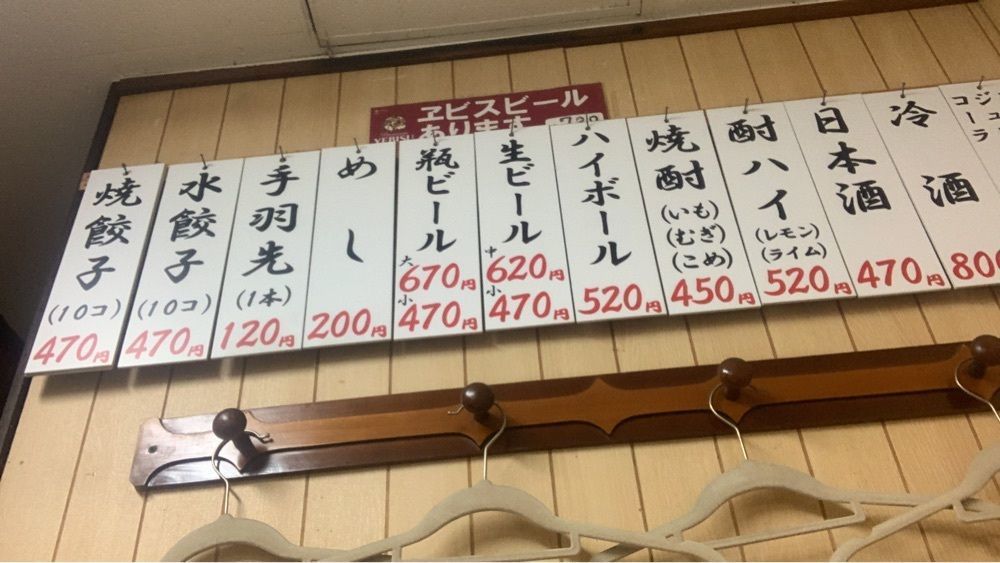 ヱビスビール
あります
YEBISU
焼餃子
(10コ)
470円
水餃子
(10コ)
470円
手羽先
(1本)
120円
めし
200円
瓶ビール
大
670円
小
470円
生ビール
中
620円
小
470円
ハイボール
520円
焼酎
(いも)
(むぎ)
(こめ)
450円
酎ハイ
(レモン)
(ライム)
520円
日本酒
470円
冷酒
800
コーラ